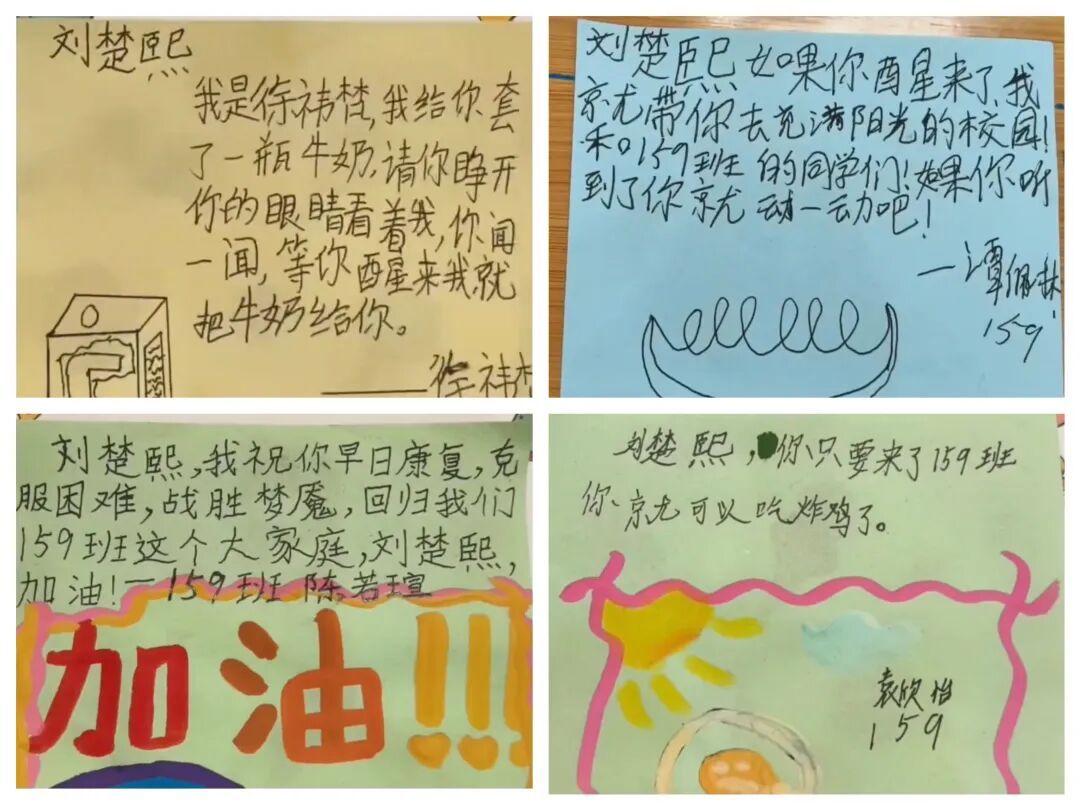 刘楚熙
我是徐祎梵,我给你套
了一瓶牛奶,请你睁开
你的眼睛看着我,你闻
一闻,等你醒星来我就
把牛奶给你。
——徐祎梵
刘楚熙如果你酉星来了,我
就带你去充满阳光的校园!
和159班的同学们!如果你听
到了你就动一动吧!
—谭佩林
159
刘楚熙,我祝你早日康复,克
服困难,战胜梦魇,回归我们
159班这个大家庭,刘楚熙,
加油!—159班陈若瑄
加油!!!
刘楚熙,你只要来了159班
你就可以吃炸鸡了。
袁欣怡
159